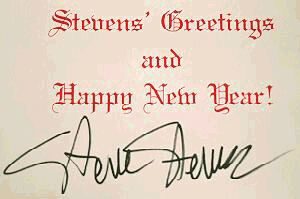 Stevens' Greetings
and
Happy New Year!
Steve